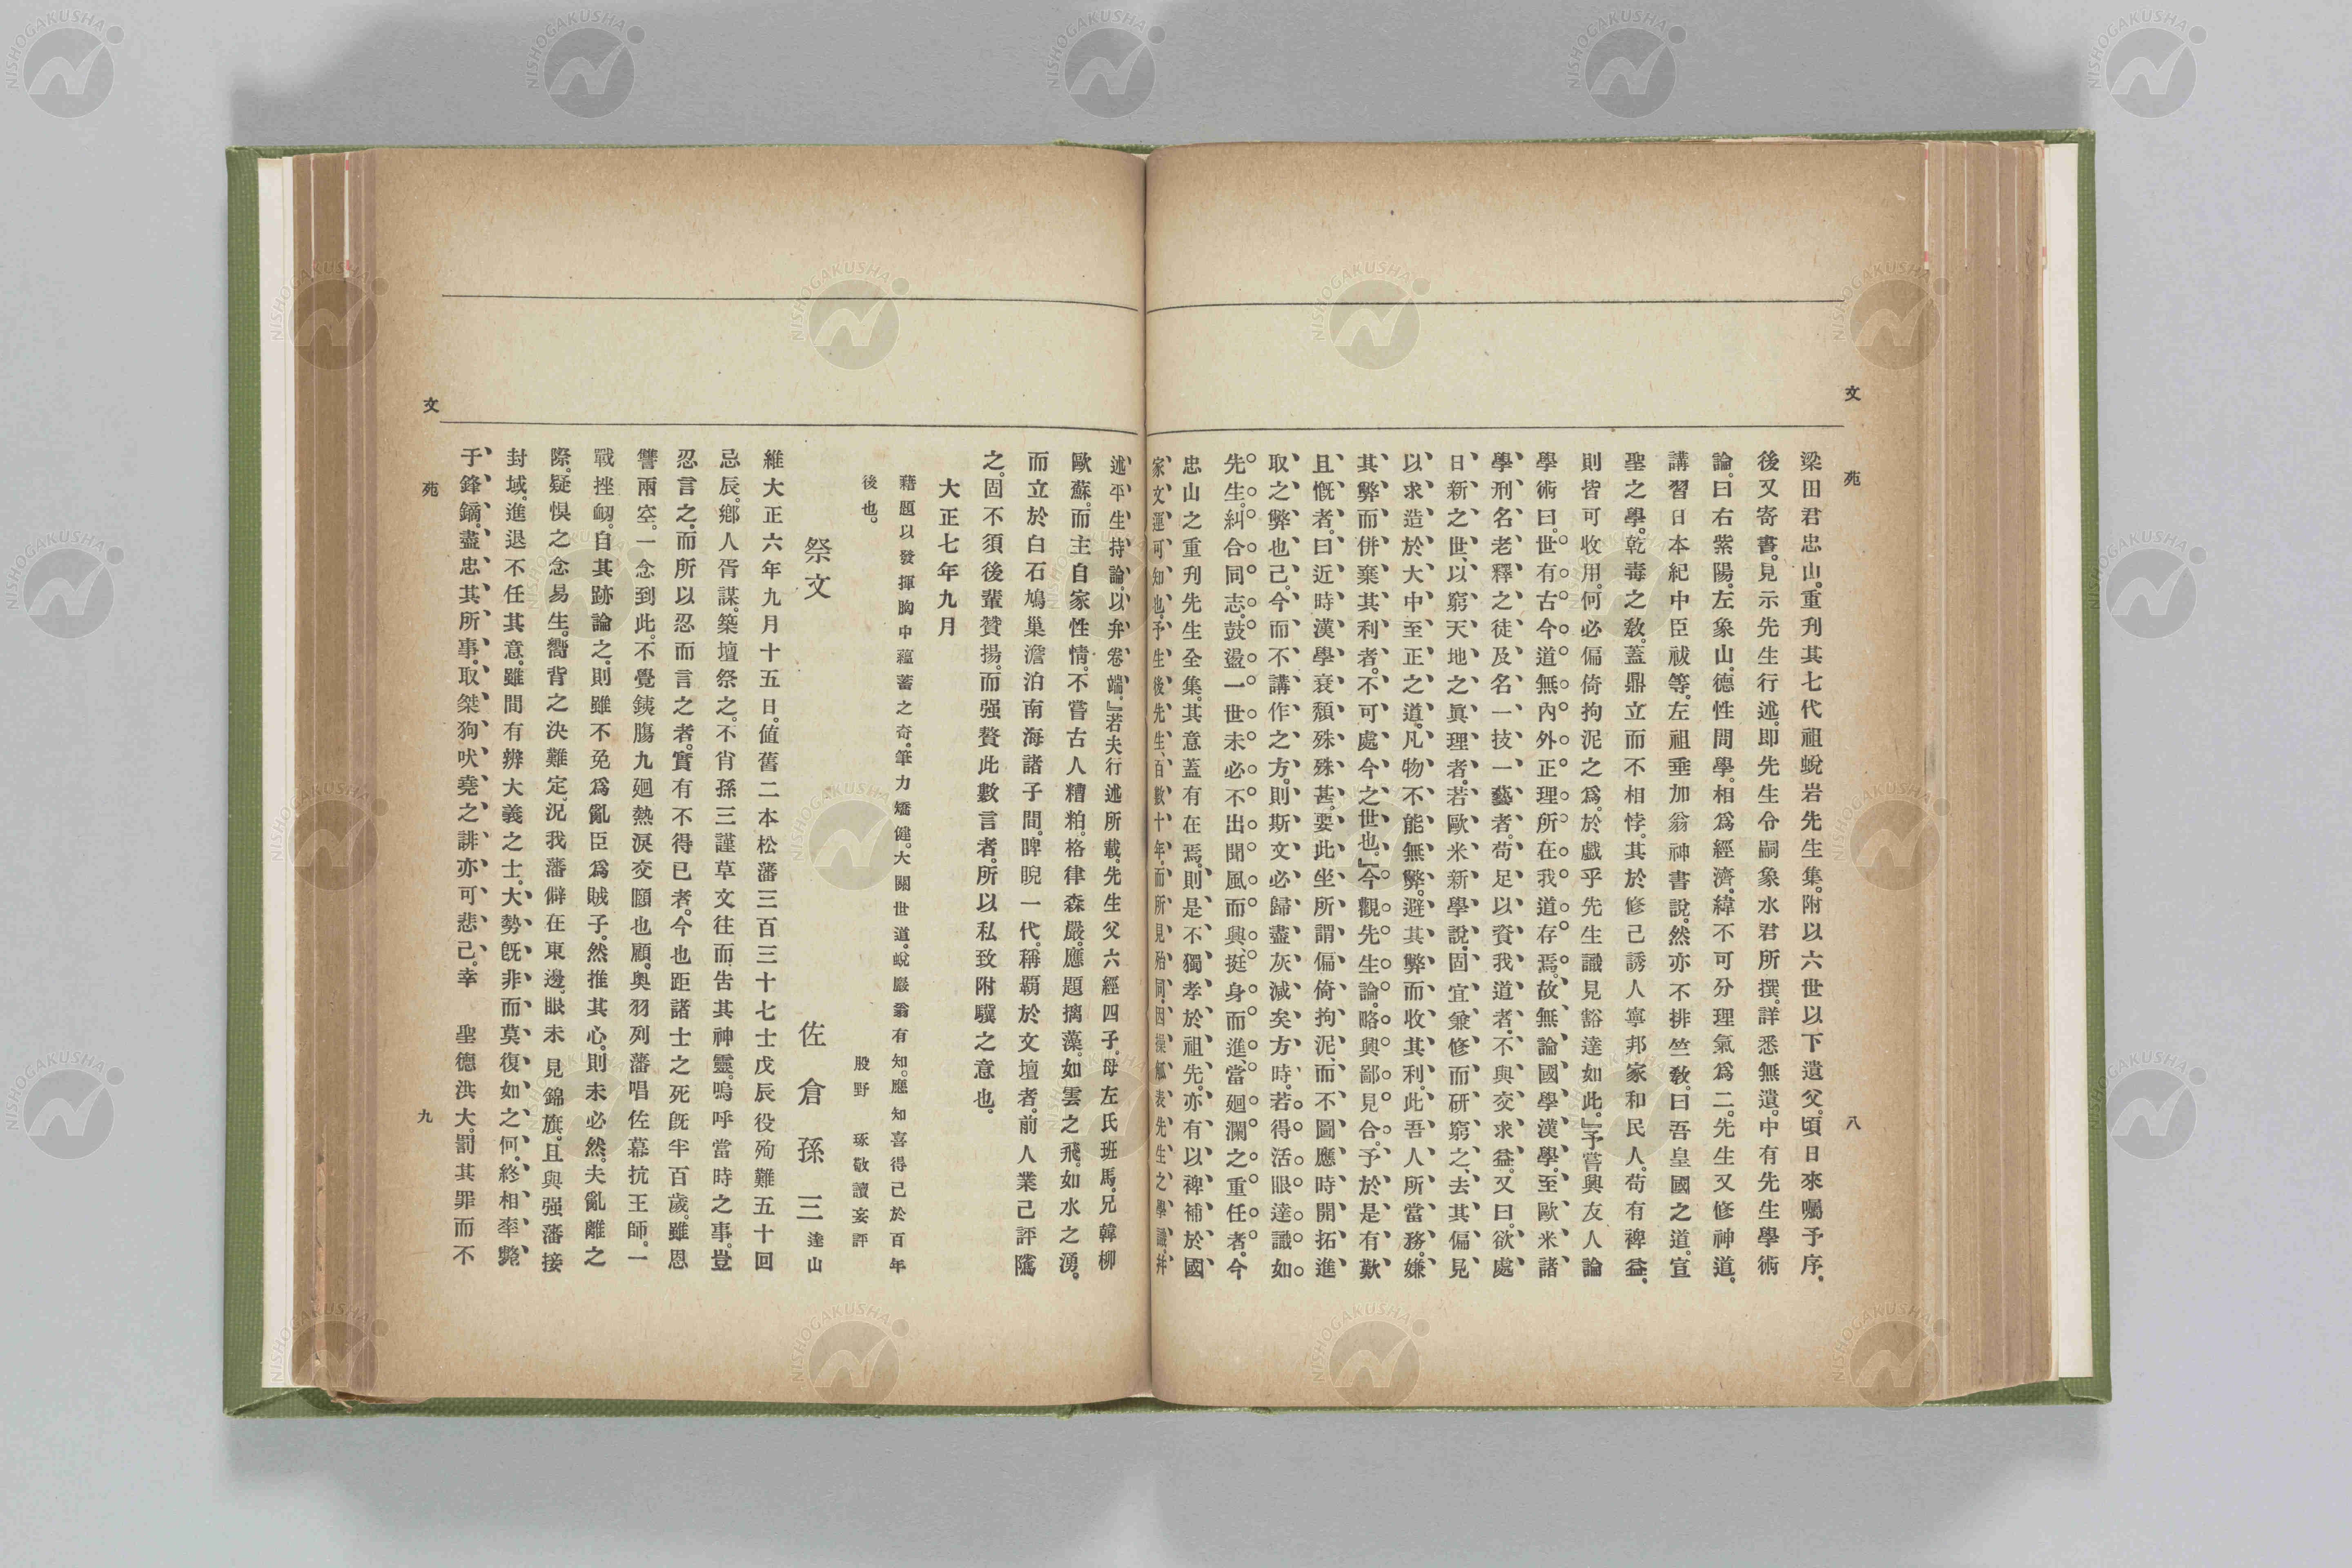 文苑
八
梁田君忠山。重刋其七代祖蛻岩先生集。附以六世以下遺父。頃日來囑予序。
後又寄書。見示先生行述。即先生令嗣象水君所撰。詳悉無遺。中有先生學術
論。曰右紫陽。左象山。德性問學。相爲經濟。緯不可分理氣爲二。先生又修神道。
講習日本紀中臣祓等。左祖垂加翁神書說。然亦不排竺敎。曰吾皇國之道。宣
聖之學。乾毒之敎。蓋鼎立而不相悖。其於修己誘人寧邦家和民人。苟有裨益。
則皆可收用。何必偏倚拘泥之爲。於戲乎先生識見豁達如此。』予嘗興友人論
學術曰。世有古今。道無內外。正理所在。我道存焉。故無論國學漢學。至歐米諸
學刑名老釋之徒及名一技一藝者。苟足以資我道者。不與交求益。又曰。欲處
日新之世。以窮天地之眞理者。若歐米新學說。固宜兼修而硏窮之、去其偏見
以求造於大中至正之道。凡物不能無弊。避其弊而收其利。此吾人所當務。嫌
其弊而併棄其利者。不可處今之世也。』今觀先生論。略興鄙見合。予於是有歎
且慨者。曰近時漢學衰頽殊殊甚。要此坐所謂偏倚拘泥、而不圖應時開拓進
取之弊也。己今而不講作之方。則斯文必歸盡灰滅矣。方時。若得活眼達識如
先生。糾合同志。鼓盪一世。未必不出聞風而興、挺身而進、當廻瀾之重任者。今
忠山之重刋先生全集。其意蓋有在焉。則是不獨孝於祖先。亦有以裨補於國
家文運可知也。予生後先生、百數十年。而所見殆同。因操觚表先生之學識。幷
述平生持論。以弁卷端。』若夫行述所載。先生父六經四子。母左氏班馬。兄韓柳
歐蘇。而主自家性情。不嘗古人糟粕。格律森嚴。應題摛藻。如雲之飛。如水之湧。
而立於白石鳩巢澹泊南海諸子間。睥睨一代。稱覇於文壇者。前人業己評隲
之。固不須後輩贊揚。而强贅此數言者。所以私致附驥之意也。
大正七年九月
藉題以發揮胸中蘊蓄之奇。筆力矯健。大關世道。蛻巖翁有知。應知喜得己於百年
後也。
股野　琢敬讀妄評
祭文
佐倉孫三達山
維大正六年九月十五日。値舊二本松藩三百三十七士戊辰役殉難五十回
忌辰。鄕人胥謀。築壇祭之。不肖孫三謹草文往而告其神靈。嗚呼當時之事。豈
忍言之。而所以忍而言之者。實有不得已者。今也距諸士之死旣半百歲。雖恩
讐兩空。一念到此。不覺銕膓九廻熱淚交頤也顧。奧羽列藩唱佐幕抗王師。一
戰挫衂。自其跡論之。則雖不免爲亂臣爲賊子。然推其心。則未必然。夫亂離之
際。疑惧之念易生。嚮背之決難定。況我藩僻在東邊。眼未見錦旗。且與强藩接
封域。進退不任其意。雖間有辨大義之士。大勢旣非而莫復如之何。終相率斃
于鋒鏑。盡忠其所事。取桀狗吠堯之誹亦可悲己。幸　聖德洪大。罰其罪而不
文苑
九